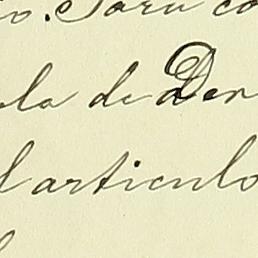 o. Para co
la de Der
l articulo